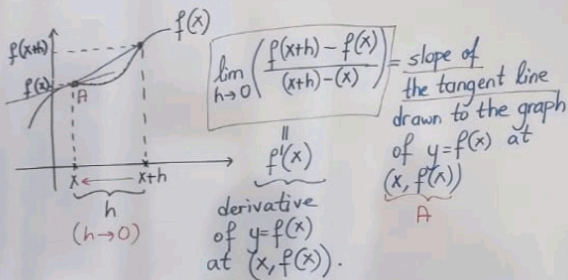 f(x)
f(x+h)
f(x)
A
x ← x+h
h
(h→0)
lim h→0 ( f(x+h) − f(x) / (x+h) − (x) ) = slope of
the tangent line
drawn to the graph
of y=f(x) at
(x, f(x))
A
=
f'(x)
derivative
of y=f(x)
at (x, f(x)).